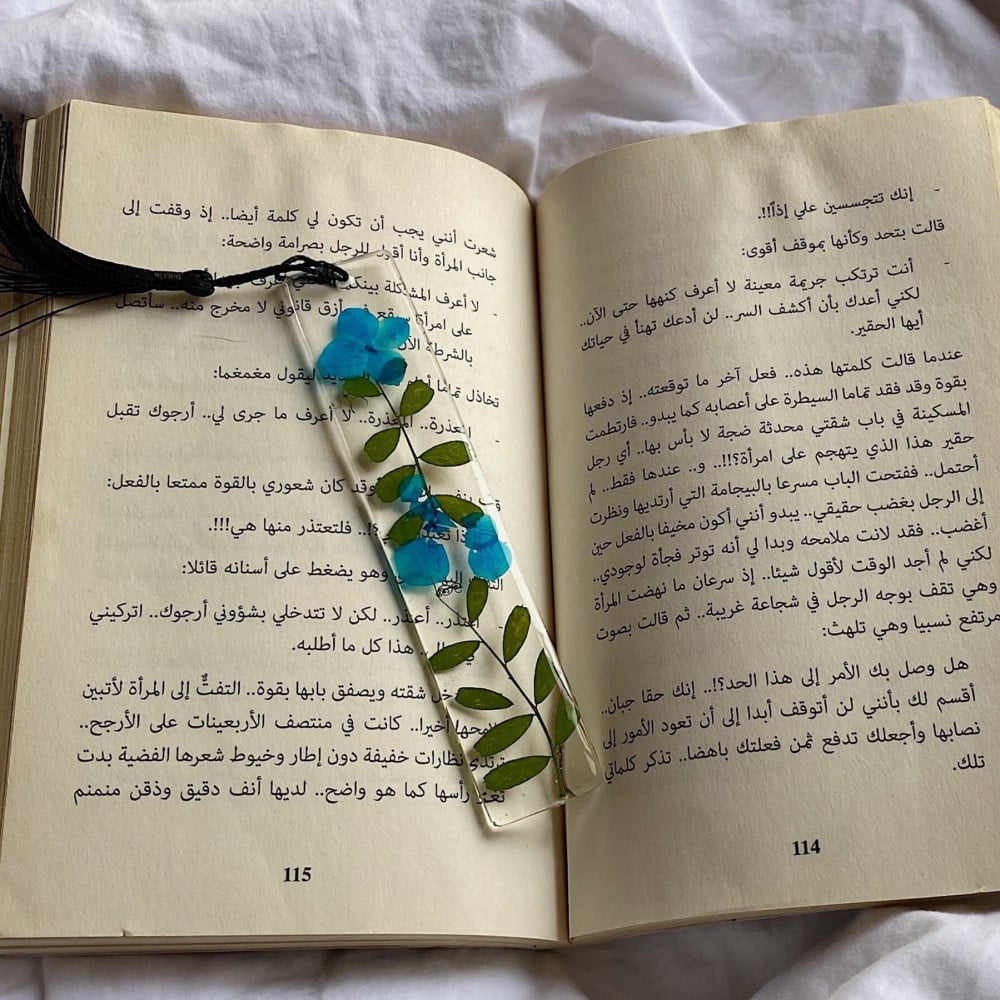 - إنك تتجسسين علي إذاً!!.
قالت بتحد وكأنها بموقف أقوى:
- أنت ترتكب جريمة معينة لا أعرف كنهها حتى الآن..
لكني أعدك بأن أكشف السر.. لن أدعك تهنأ في حياتك
أيها الحقير.
عندما قالت كلمتها هذه.. فعل آخر ما توقعته.. إذ دفعها
بقوة وقد فقد تماما السيطرة على أعصابه كما يبدو.. فارتطمت
المسكينة في باب شقتي محدثة ضجة لا بأس بها.. أي رجل
حقير هذا الذي يتهجم على امرأة؟!!.. و.. عندها فقط.. لم
أحتمل.. ففتحت الباب مسرعا بالبيجامة التي أرتديها ونظرت
إلى الرجل بغضب حقيقي.. يبدو أنني أكون مخيفا بالفعل حين
أغضب.. فقد لانت ملامحه وبدا لي أنه توتر فجأة لوجودي..
لكني لم أجد الوقت لأقول شيئا.. إذ سرعان ما نهضت المرأة
وهي تقف بوجه الرجل في شجاعة غريبة.. ثم قالت بصوت
مرتفع نسبيا وهي تلهث:
هل وصل بك الأمر إلى هذا الحد؟!.. إنك حقا جبان..
أقسم لك بأنني لن أتوقف أبدا إلى أن تعود الأمور إلى
نصابها وأجعلك تدفع ثمن فعلتك باهضا.. تذكر كلماتي
تلك.
114
شعرت أنني يجب أن تكون لي كلمة أيضا.. إذ وقفت إلى
جانب المرأة وأنا أقول للرجل بصرامة واضحة:
- لا أعرف المشكلة
على امرأة سيقع في مأزق قانوني لا مخرج منه.. سأتصل
بالشرطة الآن
تخاذل تماما ليقول مغمغما:
- المعذرة.. المعذرة.. لا أعرف ما جرى لي.. أرجوك تقبل
وقد كان شعوري بالقوة ممتعا بالفعل:
فلتعتذر منها هي!!!.
وهو يضغط على أسنانه قائلا:
- أعتذر.. أعتذر.. لكن لا تتدخلي بشؤوني أرجوك.. اتركيني
هذا كل ما أطلبه.
شقته ويصفق بابها بقوة.. التفتُّ إلى المرأة لأتبين
أخيرا.. كانت في منتصف الأربعينات على الأرجح..
ترتدي نظارات خفيفة دون إطار وخيوط شعرها الفضية بدت
رأسها كما هو واضح.. لديها أنف دقيق وذقن منمنم
115